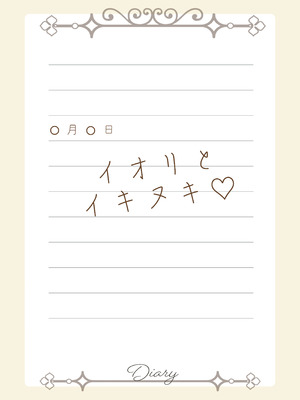 〇月〇日
イオリと
イキヌキ♡
Diary